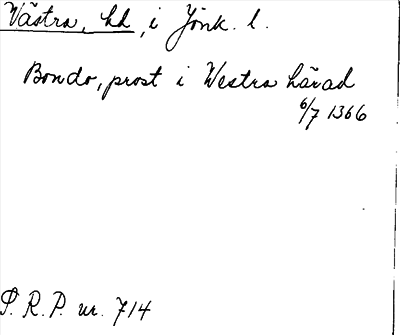 Västra, hd, i Jönk. l.
Bondo, prost i Westra härad
6/7 1366
P. R. P. nr. 714